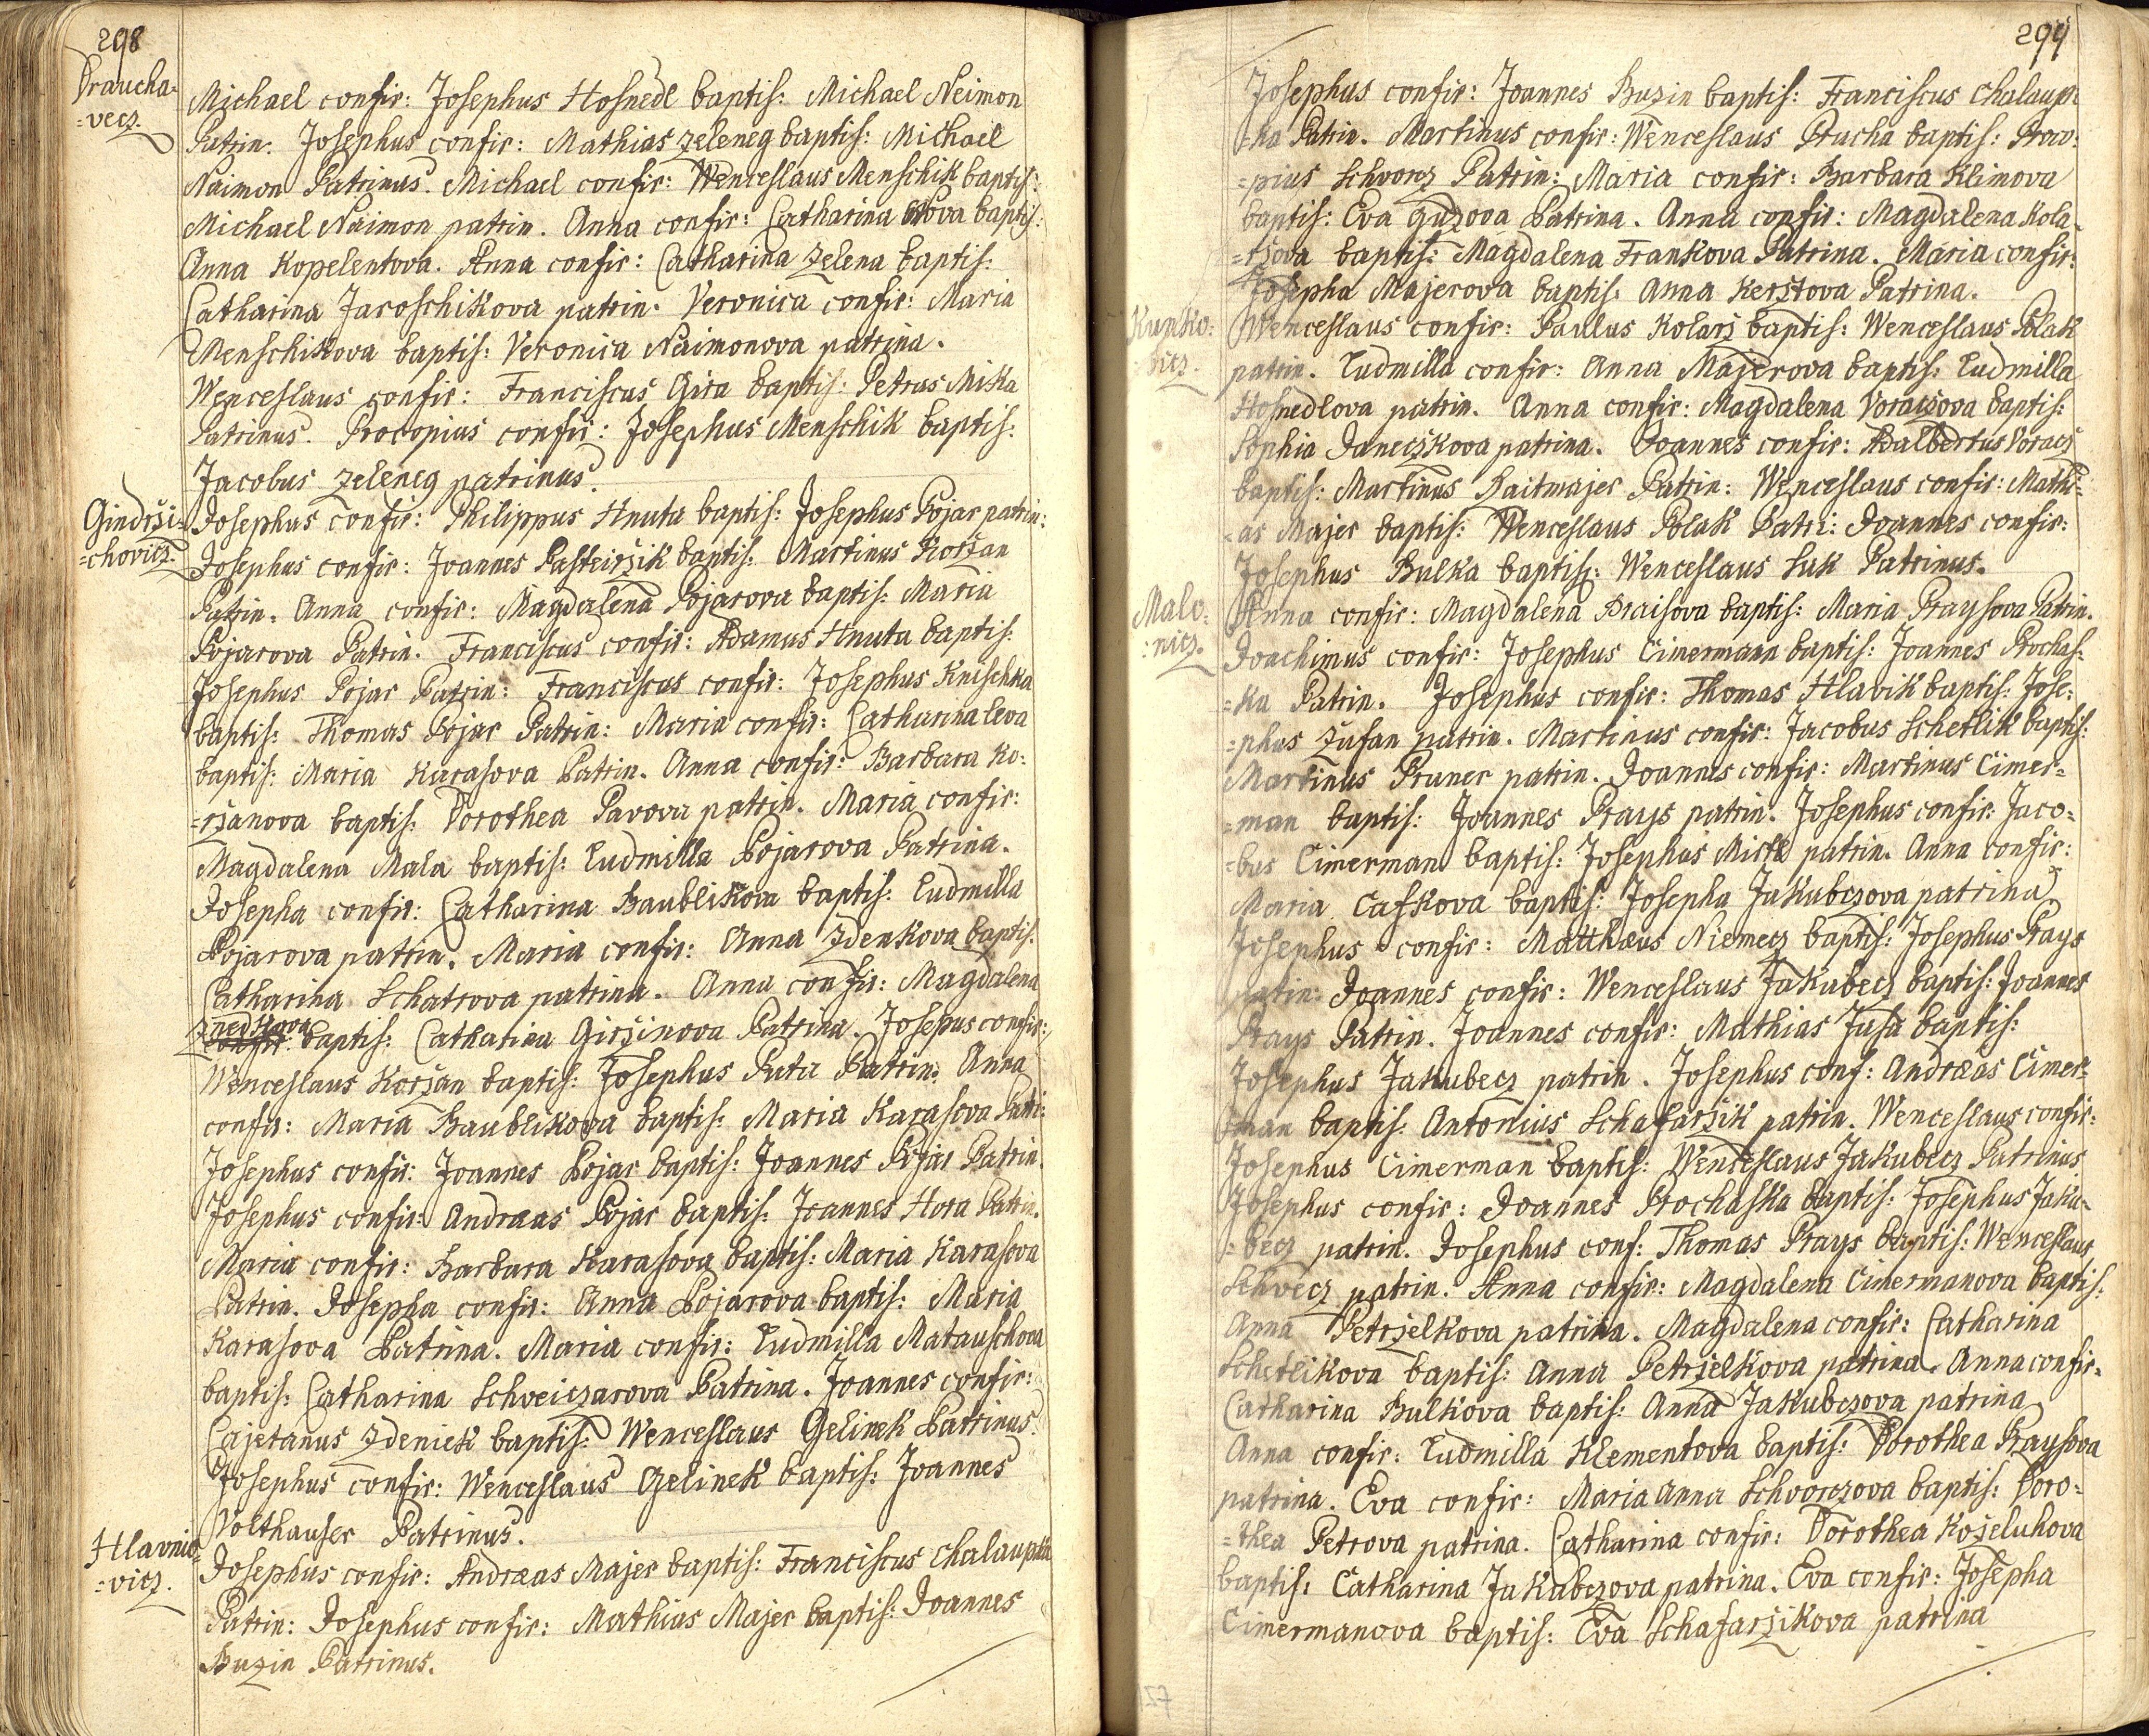 298
Draucha-
=vecz.
Michael confir: Josephus Hosnedl baptis: Michael Neimon
Patrin. Josephus confir: Mathias Zeleneg baptis: Michael
Naimon Patrinus. Michael confir: Wenceslaus Menschik baptis:
Michael Naimon patrin. Anna confir: Catharina baptis:
Anna Kopelentova. Anna confir: Catharina Zelena baptis:
Catharina Jaroschikova patrin. Veronica confir: Maria
Menschikova baptis: Veronica Naimonova patrina.
Wenceslaus confir: Franciscus Gira baptis: Petrus Mika
Patrinus. Procopius confir: Josephus Menschik baptis:
Jacobus Zeleneg patrinus.
Gindrži=
=chovicz.
Josephus confir: Philippus Hnuta baptis: Josephus Pojar patrin:
Josephus confir: Joannes Pasteiržik baptis: Martinus Koržan
Patrin. Anna confir: Magdalena Pojarova baptis: Maria
Pojarova Patrin. Franciscus confir: Adamus Hnuta baptis:
Josephus Pojar Patrin: Franciscus confir: Josephus Knischka
baptis: Thomas Pojar Patrin: Maria confir: Catharina Leva
baptis: Maria Karasova Patrin. Anna confir: Barbara Ko:
=ržanova baptis: Dorothea Pavova patrin. Maria confir:
Magdalena Mala baptis: Ludmilla Pojarova Patrina.
Josepha confir: Catharina Baublikova baptis: Ludmilla
Pojarova patrin. Maria confir: Anna Zdenkova baptis:
Catharina Schatrova patrina. Anna confir: Magdalena
Znedkova
confir: baptis: Catharina Giržinova Patrina. Josepus confir:
Wenceslaus Koržan baptis: Josephus Puta Patrin. Anna
confir: Maria Baublikova baptis: Maria Karasova Patri:
Josephus confir: Joannes Pojar baptis: Joannes Pojar Patrin.
Josephus confir: Andraas Pojar baptis: Joannes Hora Patrin.
Maria confir: Barbara Karasova baptis: Maria Karasova
Patrin. Josepha confir: Anna Pojarova baptis: Maria
Karasova Patrina. Maria confir: Ludmilla Matauschova
baptis: Catharina Schveiczarova Patrina. Joannes confir:
Cajetanus Zdeniek baptis: Wenceslaus Gelinek Patrinus.
Josephus confir: Wenceslaus Gelinek baptis: Joannes
Volthauser Patrinus.
Hlavnio=
=vicz.
Josephus confir: Andraas Majer baptis: Franciscus Chalaupka
Patrin: Josephus confir: Mathias Majer baptis: Joannes
Buzin Patrinus.
299
Josephus confir: Joannes Buzin baptis: Franciscus Chalaup:
=ka Patrin. Martinus confir: Wenceslaus Prucha baptis: Proco:
=pius Schvorcz Patrin: Maria confir: Barbara Klimova
baptis: Eva Guzova Patrina. Anna confir: Magdalena Kola-
=ržova baptis: Magdalena Frankova Patrina. Maria confir:
Josepha Majerova baptis: Anna Kerstova Patrina.
Kunko:
vicz.
Wenceslaus confir: Paulus Kolarž baptis: Wenceslaus Polak
patrin. Ludmilla confir: Anna Majerova baptis: Ludmilla
Hosnedlova patrin. Anna confir: Magdalena Voraczova baptis:
Sophia Janeczkova patrina. Joannes confir: Adalbertus Voracz
baptis: Martinus Raitmajer Patrin: Wenceslaus confir: Mathi=
=as Majer baptis: Wenceslaus Polak Patri: Joannes confir:
Josephus Bulka baptis: Wenceslaus Suk Patrinus.
Malo:
:nicz.
Anna confir: Magdalena Braisova baptis: Maria Praysova Patrin.
Joachimus confir: Josephus Cimermann baptis: Joannes Prochas:
=ka Patrin. Josephus confir: Thomas Hlavik baptis: Jose:
=phus Zufan patrin. Martinus confir: Jacobus Schetlik baptis:
Martinus Pruner patrin. Joannes confir: Martinus Cimer=
=man baptis: Joannes Prays patrin. Josephus confir: Jaco=
=bus Cimerman baptis: Josephus Mistl patrin. Anna confir:
Maria Cafkova baptis: Josepha Jakubczova patrina.
Josephus confir: Matthæus Niemecz baptis: Josephus Prays
patin: Joannes confir: Wenceslaus Jakubecz baptis: Joannes
Prays Patrin. Joannes confir: Mathias Jusa baptis:
Josephus Jakubecz patrin. Josephus conf: Andræas Cimer=
=man baptis: Antonius Schafaržik patrin. Wenceslaus confir:
Josephus Cimerman baptis: Wenceslaus Jakubecz Patrinus
Josephus confir: Joannes Prochaska baptis: Josephus Jaku-
=becz patrin. Josephus conf: Thomas Prays baptis: Wenceslaus
Schvecz patrin. Anna confir: Magdalena Cimermanova baptis:
Anna Petrželkova patrina. Magdalena confir: Catharina
Schetlikova baptis: Anna Petrželkova patrina. Anna confir:
Catharina Bulkova baptis: Anna Jakubczova patrina
Anna confir: Ludmilla Klementova baptis: Dorothea Praysova
patrina. Eva confir: Maria Anna Schvorczova baptis: Doro=
=thea Petrova patrina. Catharina confir: Dorothea Koželuhova
baptis: Catharina Jakubczova patrina. Eva confir: Josepha
Cimermanova baptis: Eva Schafaržikova patrina